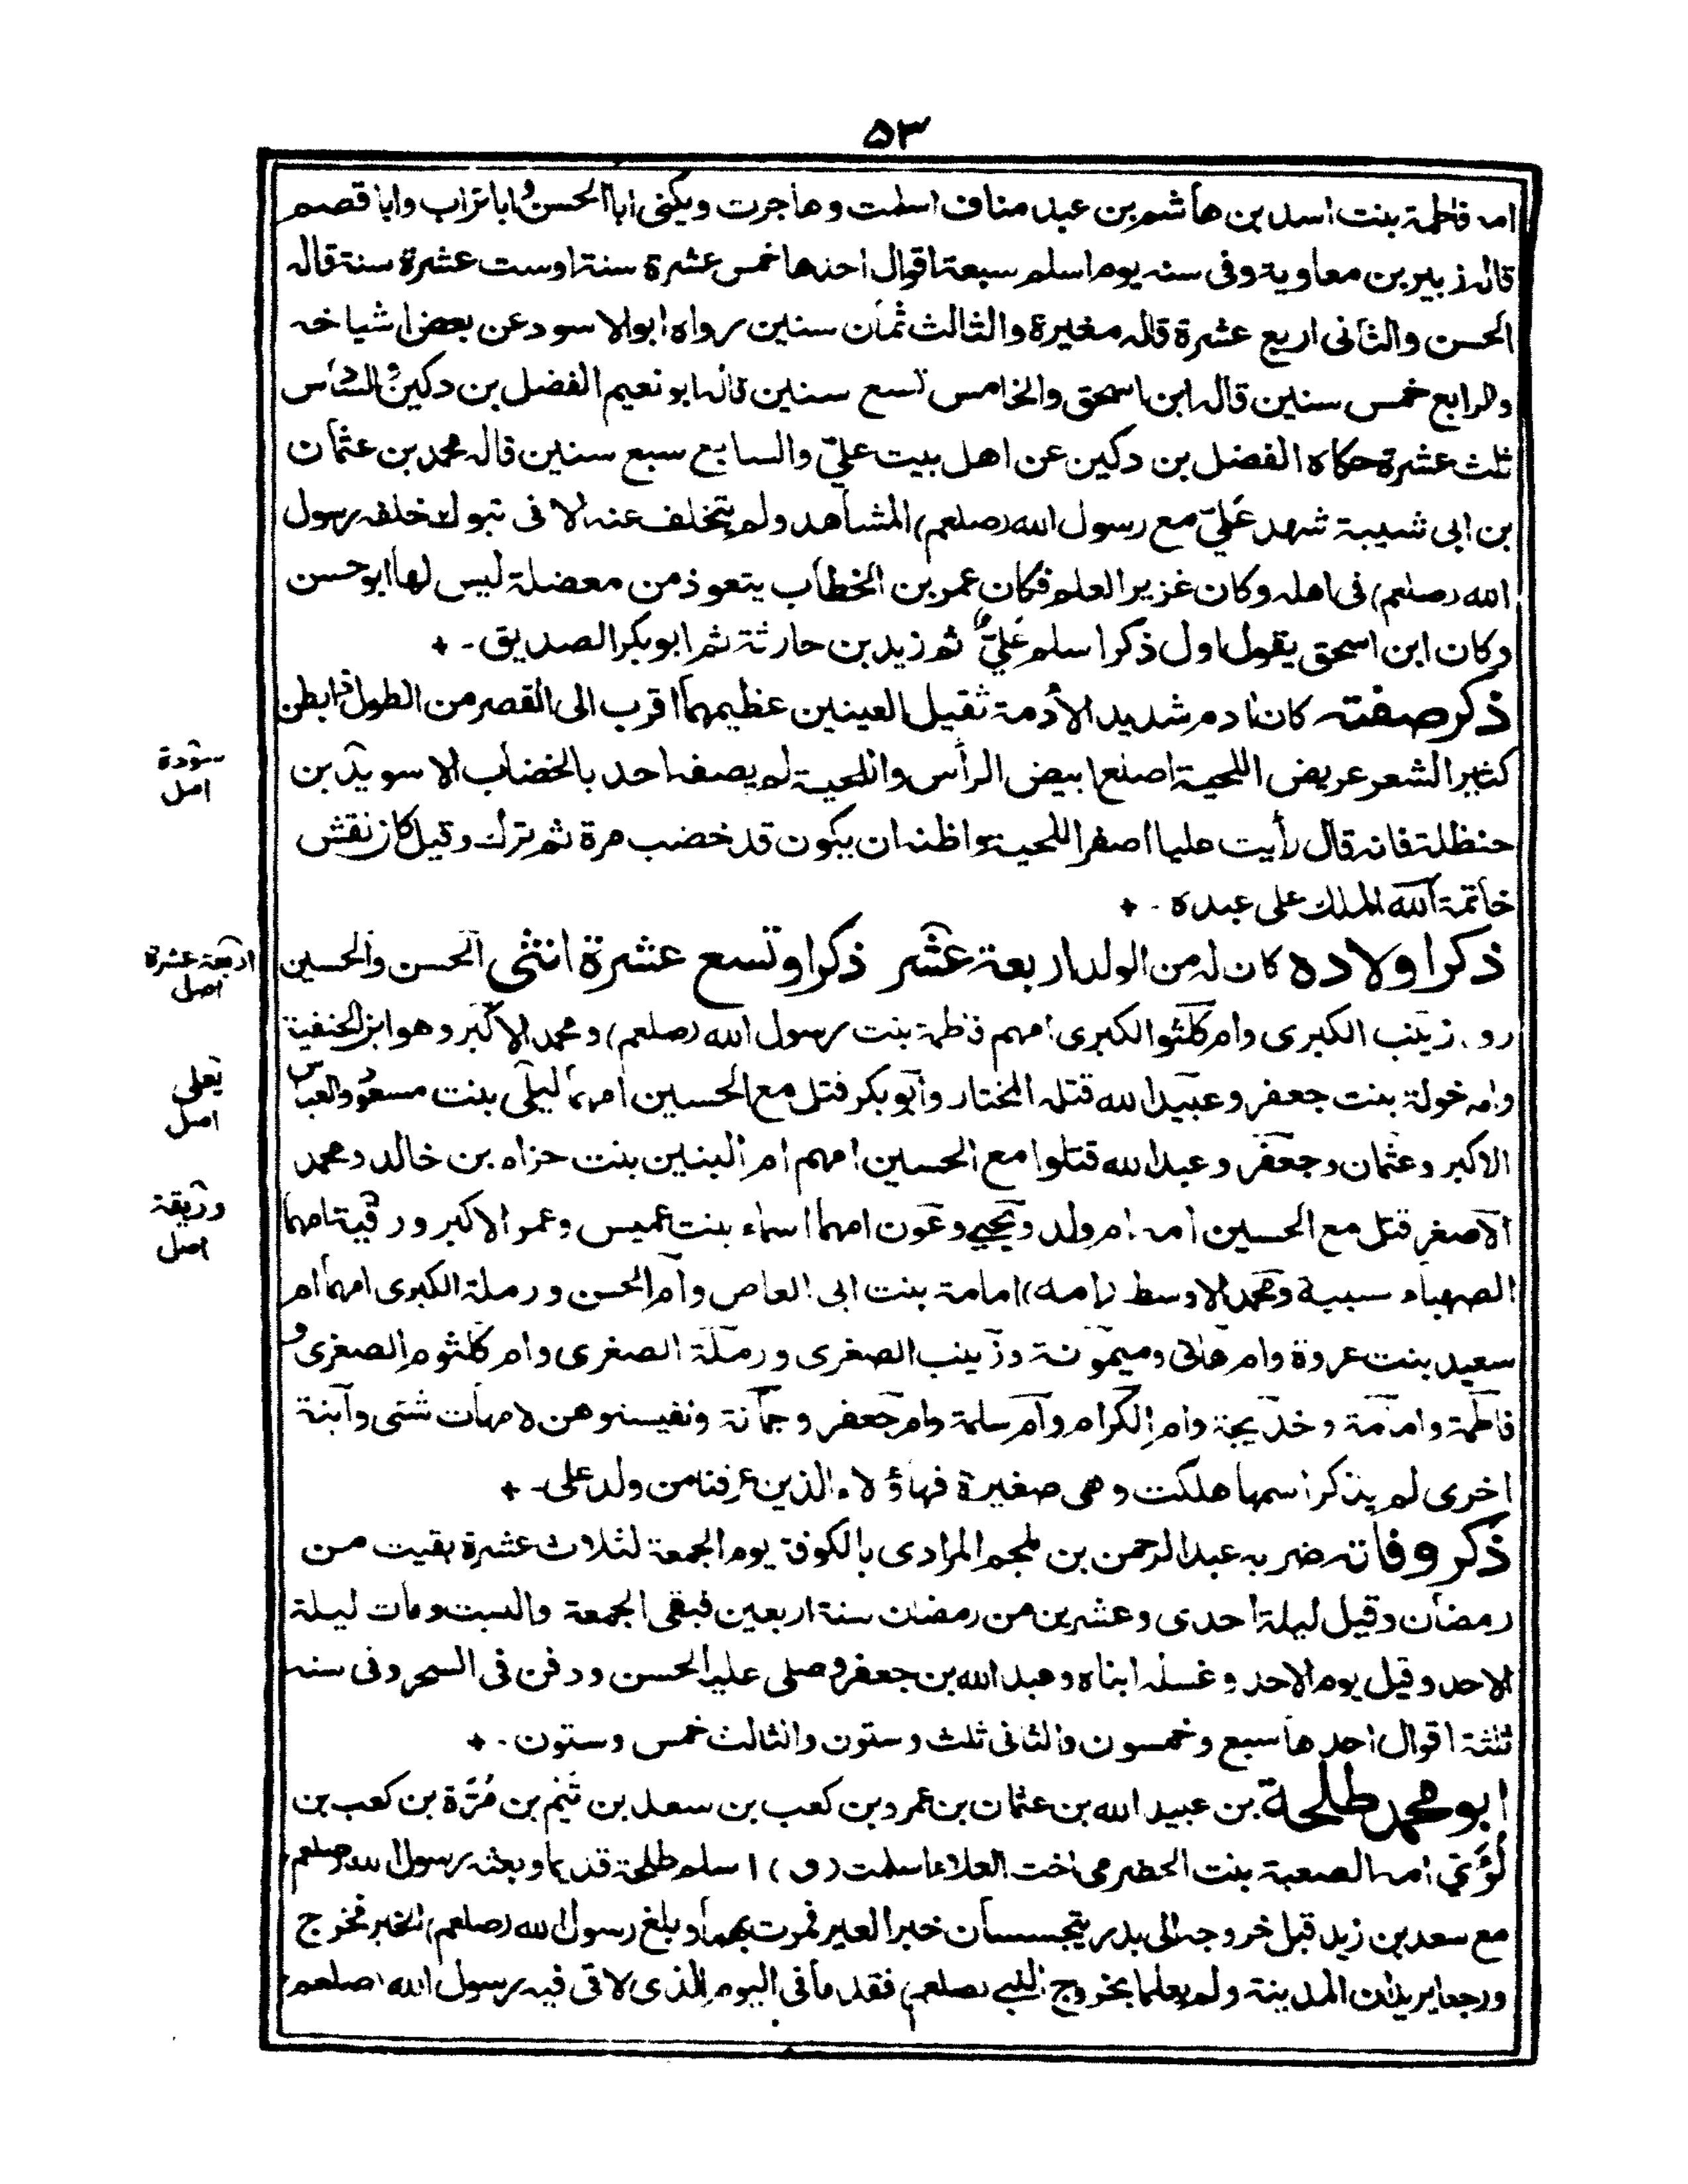 ۵۳
امه فاطمة بنت اسد بن هاشم بن عبد مناف اسلمت وهاجرت ويكنى ابا الحسن وابا تراب وابا قصم
قاله زبير بن معاوية وفى سنه يوم اسلم سبعة اقوال احدها خمس عشرة سنة اوست عشرة سنة قاله
الحسن والثانى اربع عشرة قاله مغيرة والثالث ثمان سنين رواه ابوالاسود عن بعض اشياخه
والرابع خمس سنين قاله ابن اسحق والخامس تسع سنين قاله ابو نعيم الفضل بن دكين والسادس
ثلث عشرة حكاه الفضل بن دكين عن اهل بيت علىّ والسابع سبع سنين قاله محمد بن عثمان
بن ابى شيبة شهد علىّ مع رسول الله (صلعم) المشاهد ولم يتخلف عنه الا فى تبوك خلفه رسول
الله (صلعم) فى اهله وكان غزير العلم فكان عمر بن الخطاب يتعوذ من معضلة ليس لها ابو حسن
وكان ابن اسحق يقول اول ذكر اسلم علىّ ثم زيد بن حارثة ثم ابو بكر الصديق -+
ذكر صفته كان ادم شديد الأدمة ثقيل العينين عظيمهما اقرب الى القصر من الطول ذا بطن
كثير الشعر عريض اللحية اصلع ابيض الرأس واللحية لم يصفه احد بالخضاب الا سويد بن
سودة
اصل
حنظلة فانه قال رأيت عليا اصفر اللحية واظنه ان يكون قد خضب مرة ثم ترك وقيل كان نقش
خاتمة الله الملك على عبده -+
ذكر اولاده كان له من الولد اربعة عشر ذكرا وتسع عشرة انثى الحسن والحسين
اربعة عشرة
اصل
زينب الكبرى وام كلثوالكبرى امهم فاطمة بنت رسول الله (صلعم) ومحمد الاكبر وهو ابن الحنفية
وامه خولة بنت جعفر وعبيد الله قتله المختار وابو بكر قتل مع الحسين امهما ليلى بنت مسعود والعباس
يعلى
اصل
الاكبر وعثمان وجعفر وعبد الله قتلوا مع الحسين امهم ام البنين بنت حزاه بن خالد ومحمد
الاصغر قتل مع الحسين امه ام ولد ويحيي وعون امهما اسماء بنت عميس وعمر الاكبر ورقية امهما
وريقة
اصل
الصهباء سبية ومحمد الاوسط (امه) امامة بنت ابى العاص وام الحسن ورملة الكبرى امهما ام
سعيد بنت عروة وام هانى وميمونة وزينب الصغرى ورملة الصغرى وام كلثوم الصغرى و
فاطمة وامامة وخديجة وام الكرام وام سلمة وام جعفر وجمانة ونفيسة وهن لامهات شتى وابنة
اخرى لم يذكر اسمها هلكت وهى صغيرة فهاؤلاء الذين عرفنا من ولد على -+
ذكر وفاته ضربه عبد الرحمن بن ملجم المرادى بالكوفة يوم الجمعة لثلاث عشرة بقيت من
رمضان وقيل ليلة احدى وعشرين من رمضان سنة اربعين فبقى الجمعة والسبت ومات ليلة
الاحد وقيل يوم الاحد وغسله ابناه وعبد الله بن جعفر وصلى عليه الحسن ودفن فى السحر وفى سنه
ثلثة اقوال احدها سبع وخمسون والثانى ثلث وستون والثالث خمس وستون -+
ابو محمد طلحة بن عبيد الله بن عثمان بن عمرو بن كعب بن سعد بن تيم بن مُرّة بن كعب بن
لُؤَىّ امه الصعبة بنت الحضرمى اخت العلاء اسلمت (و) اسلم طلحة قديما وبعثه رسول الله (صلعم)
مع سعد بن زيد قبل خروجه الى بدر يتجسسان خبر العير فمرت بهما وبلغ رسول الله (صلعم) الخبر فخرج
ورجعا يريدان المدينة ولم يعلما بخروج النبى (صلعم) فقدما فى اليوم الذى لاقى فيه رسول الله (صلعم)